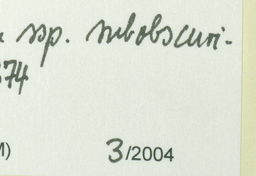 ssp. subobscuri-
874
M)
3/2004